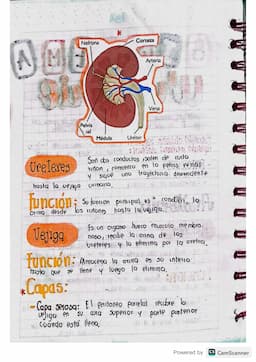 Nefrona
Corteza
Arteria
Vena
Pelvis
Médula
Ureter
Ureteres
Son dos conductos salen de cada
riñon, comienza en la pelvis renal
y sigue una trayectoria descendente
hasta la vejiga urinaria.
Función: Su funcion principal es conducir la
orina desde los riñones hasta la vejiga.
Vejiga
Es un organo hueco musculo membra
noso, recibe la orina de los
ureteres y la elimina por la uretra.
Función: Almacena la orina en su interior
hasta que se llene y luego la elimina.
*Capas:
-Capa serosa: El peritoneo parietal recubre la
vejiga en su cara superior y parte posterior
cuando está llena.
Powered by CS CamScanner